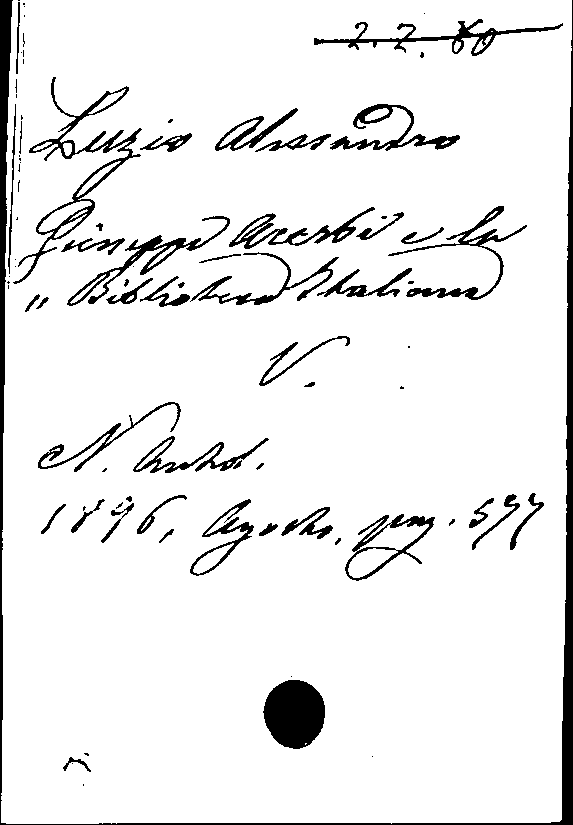 2. 2. 80
Luzio Alessandro
Giuseppe Acerbi e la
„ Biblioteca Italiana
V.
N. Antol.
1896, Agosto, pag. 577